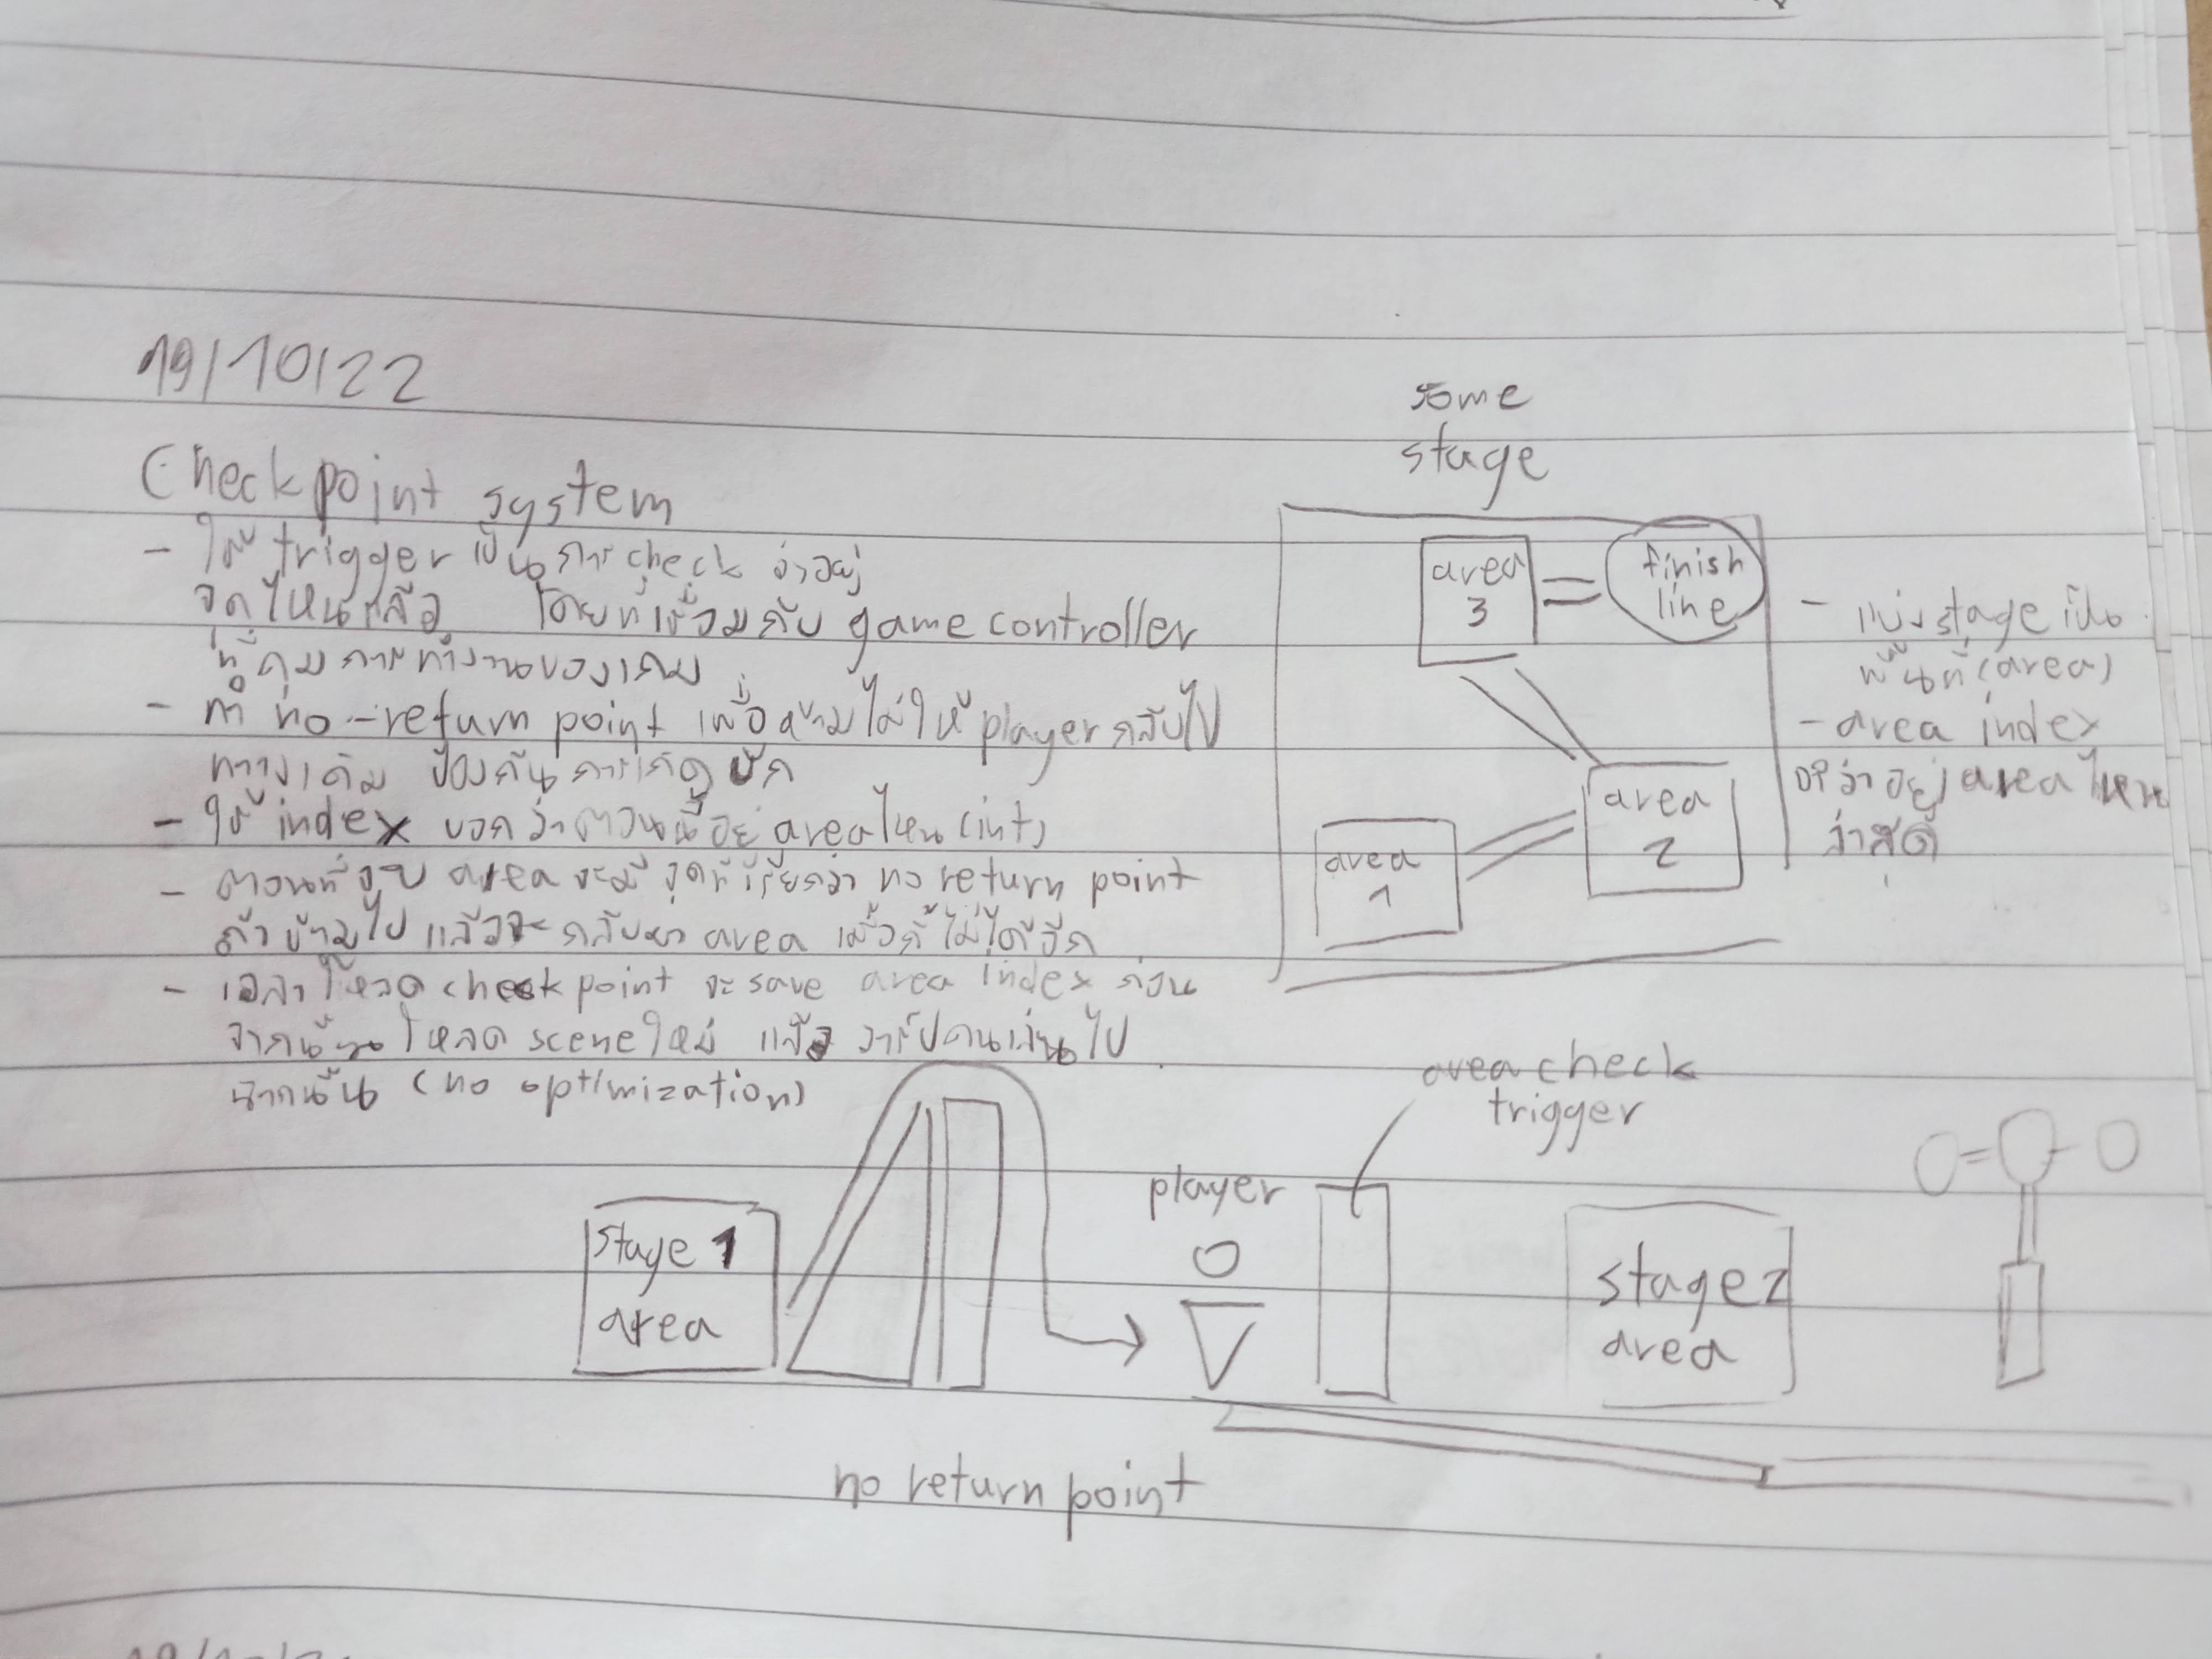 19/10/22
Checkpoint system
- ให้ trigger เป็นการ check ว่าอยู่
จุดไหนแล้ว โดยที่เชื่อมกับ game controller
ที่คุมการทำงานของเกม
- ทำ no-return point เพื่อห้ามไม่ให้ player กลับไป
ทางเดิม ป้องกันการเกิดบัก
- ให้ index บอกว่าตอนนี้อยู่ area ไหน (int)
- ตอนที่จบ area จะมีจุดที่เรียกว่า no return point
ถ้าข้ามไปแล้วจะกลับมา area เมื่อกี้ไม่ได้อีก
- เวลาโหลด checkpoint จะ save area index ก่อน
จากนั้นโหลด scene ใหม่ แล้ววาร์ปคนเล่นไป
(no optimization)
some
stage
area
3
finish
line
area
2
area
1
- แบ่ง stage เป็น
พื้นที่ (area)
- area index
ว่าอยู่ area ไหน
ล่าสุด
area check
trigger
player
stage 1
area
stage 2
area
no return point